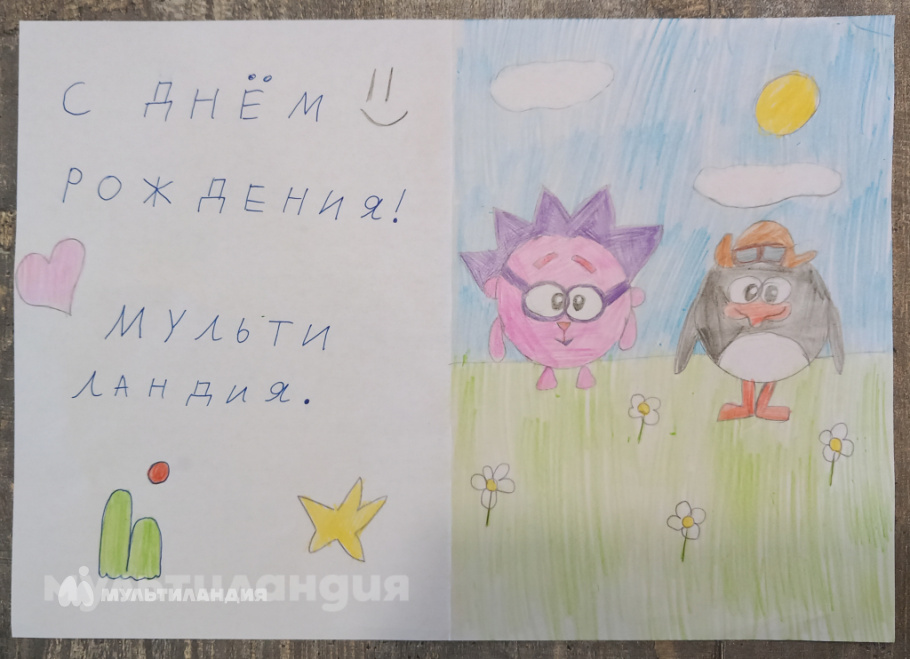 С ДНЁМ
РОЖДЕНИЯ!
МУЛЬТИ
ЛАНДИЯ.
мультиландия
МУЛЬТИЛАНДИЯ